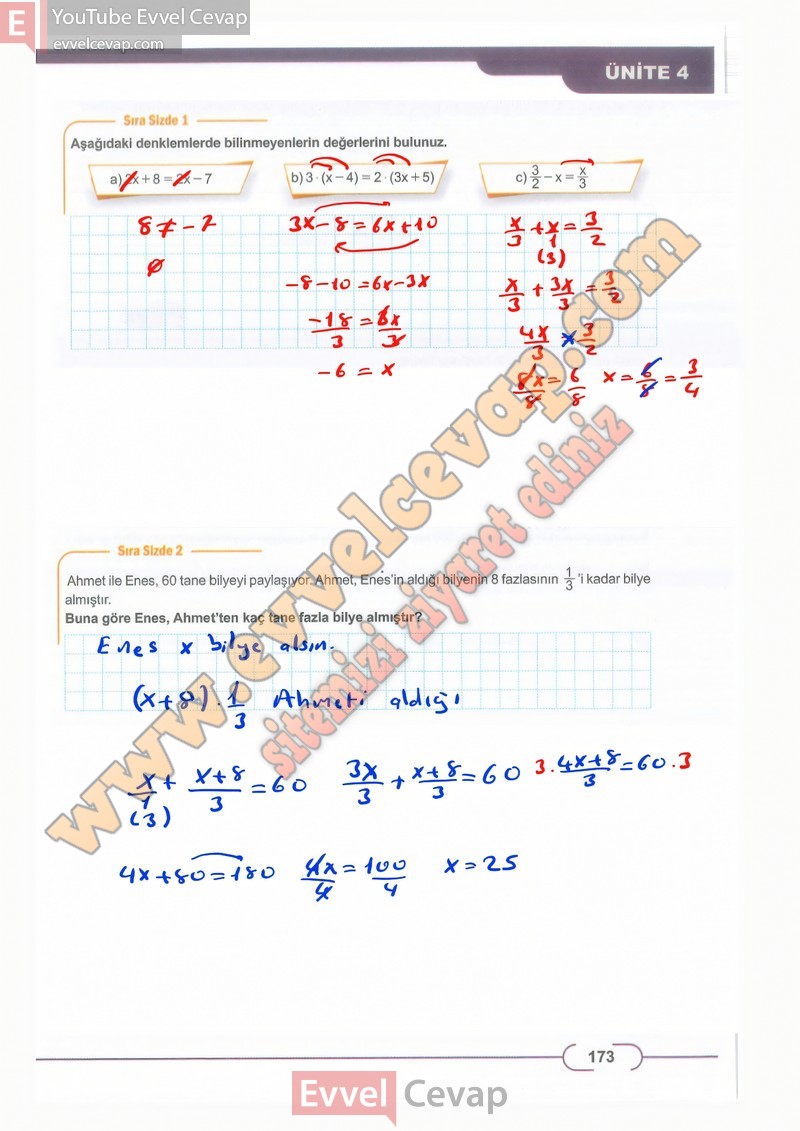 E YouTube Evvel Cevap
evvelcevap.com
ÜNİTE 4
Sıra Sizde 1
Aşağıdaki denklemlerde bilinmeyenlerin değerlerini bulunuz.
a) 2x + 8 = 2x – 7
b) 3 · (x – 4) = 2 · (3x + 5)
c) 3/2 – x = x/3
8 ≠ -7
∅
3x - 8 = 6x + 10
-8 - 10 = 6x - 3x
-18/3 = 3x/3
-6 = x
x/3 + x/1 = 3/2
(3)
x/3 + 3x/3 = 3/2
4x/3 × 3/2
8x/8 = 6/8 x = 6/8 = 3/4
www.evvelcevap.com
sitemizi ziyaret ediniz
Sıra Sizde 2
Ahmet ile Enes, 60 tane bilyeyi paylaşıyor. Ahmet, Enes'in aldığı bilyenin 8 fazlasının 1/3 'i kadar bilye
almıştır.
Buna göre Enes, Ahmet'ten kaç tane fazla bilye almıştır?
Enes x bilye alsın.
(x+8) · 1/3 Ahmeti aldığı
x/1 + x+8/3 = 60 3x/3 + x+8/3 = 60 3 · 4x+8/3 = 60 · 3
(3)
4x + 80 = 180 4x/4 = 100/4 x = 25
173
Evvel Cevap